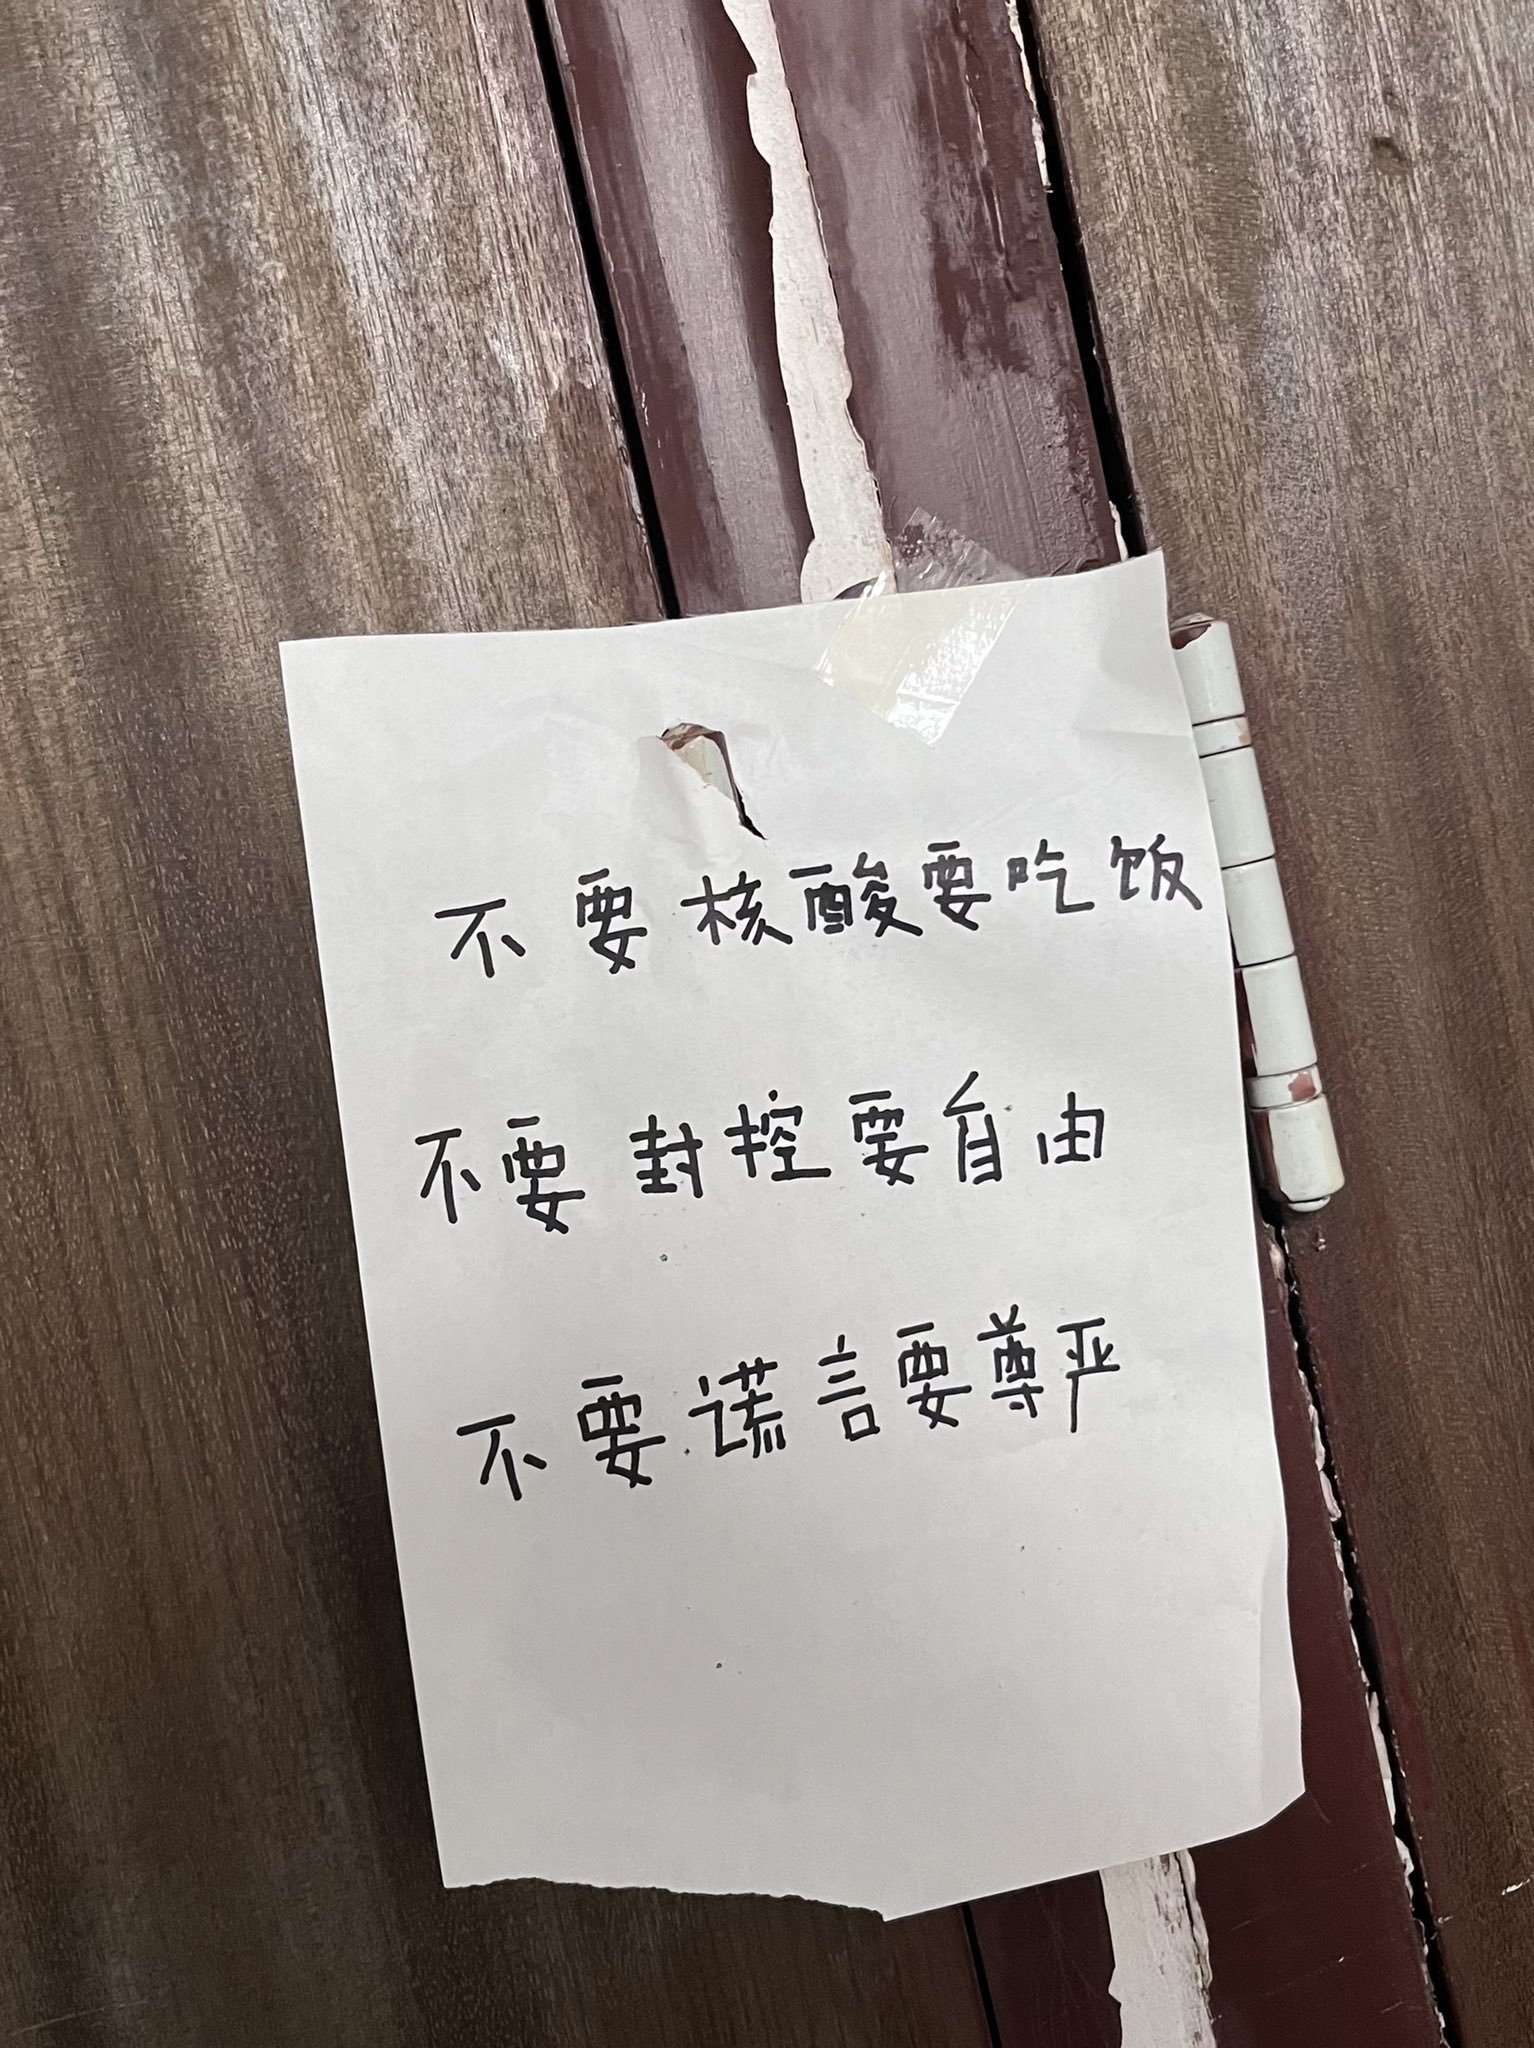 不要核酸要吃饭
不要封控要自由
不要谎言要尊严